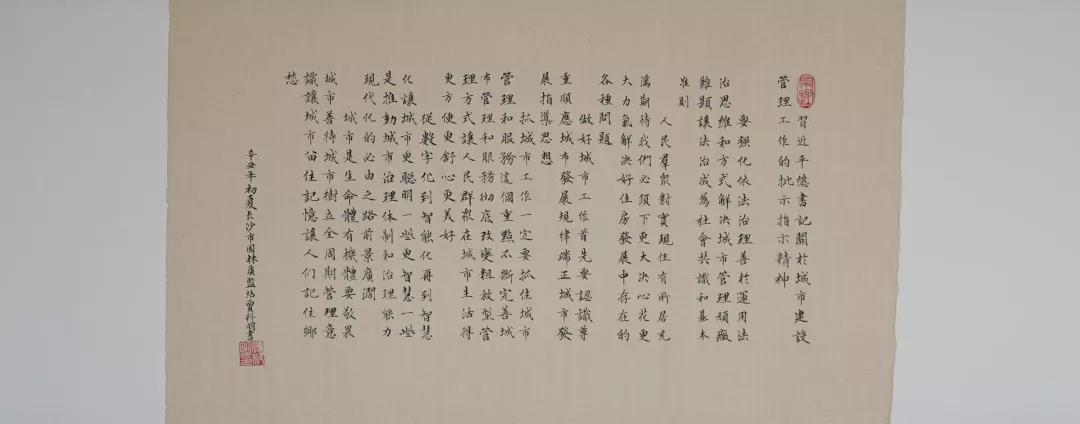 習近平總書記關於城市建設
管理工作的批示指示精神
要强化依法治理善於運用法
治思維和方式解決城市管理頑癥
難題讓法治成為社會共識和基本
准則
人民羣衆對實現住有所居充
滿期待我們必須下更大決心花更
大力氣解決好住房發展中存在的
各種問題
做好城市工作首先要認識尊
重順應城市發展規律端正城市發
展指導思想
抓城市工作一定要抓住城市
管理和服務這個重點不斷完善城
市管理和服務彻底改變粗放型管
理方式讓人民群衆在城市生活得
更方便更舒心更美好
從數字化到智能化再到智慧
化讓城市更聰明一些更智慧一些
是推動城市治理体制和治理能力
現代化的必由之路前景廣闊
城市是生命體有機體要敬畏
城市善待城市樹立全周期管理意
識讓城市留住記憶讓人們記住鄉
愁
辛丑年初夏長沙市園林質監站賈科明書